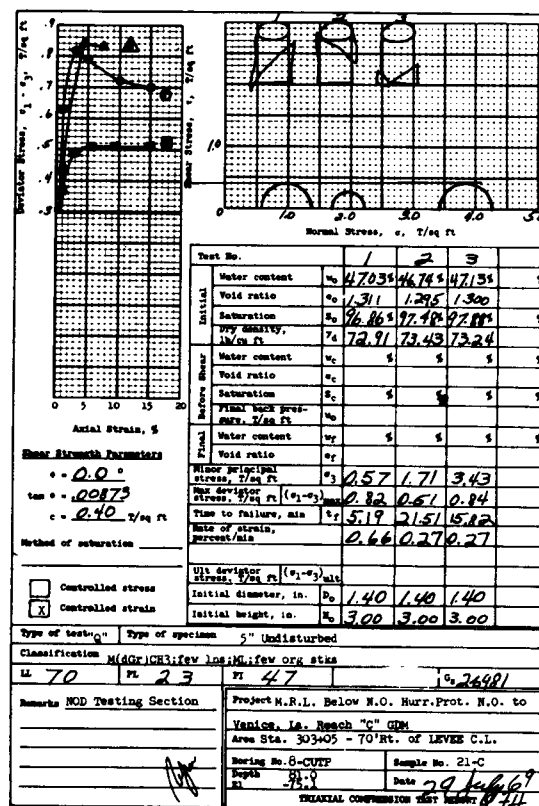 1 3
.9
.8
.7
.6
.5
.4
.3
Deviator Stress, σ1 - σ3, T/sq ft
0 5 10 15 20
Axial Strain, %
Shear Stress, τ, T/sq ft
1.0
0 1.0 2.0 3.0 4.0 5.0
Normal Stress, σ, T/sq ft
Shear Strength Parameters
φ = 0.0 °
tan φ = .00873
c = 0.40 T/sq ft
Method of saturation
Controlled stress
X Controlled strain
Test No. 1 2 3
Initial
Water content w0 47.03% 46.74% 47.13% %
Void ratio e0 1.311 1.295 1.300
Saturation S0 96.86% 97.48% 97.88% %
Dry density, lb/cu ft γd 72.91 73.43 73.24
Before Shear
Water content wc % % % %
Void ratio ec
Saturation Sc % % % %
Final back pressure, T/sq ft u0
Final
Water content wf % % % %
Void ratio ef
Minor principal stress, T/sq ft σ3 0.57 1.71 3.43
Max deviator stress, T/sq ft (σ1-σ3)max 0.82 0.61 0.84
Time to failure, min tf 5.19 21.51 15.82
Rate of strain, percent/min 0.66 0.27 0.27
Ult deviator stress, T/sq ft (σ1-σ3)ult
Initial diameter, in. D0 1.40 1.40 1.40
Initial height, in. H0 3.00 3.00 3.00
Type of test "Q" Type of specimen 5" Undisturbed
Classification M(dGr)CH3;few lns;ML;few org stks
LL 70 PL 23 PI 47 Gs 2.6981
Remarks NOD Testing Section
Project M.R.L. Below N.O. Hurr.Prot. N.O. to
Venice, La. Reach "C" GDM
Area Sta. 303+05 - 70'Rt. of LEVEE C.L.
Boring No. 8-CUTP Sample No. 21-C
Depth 81.0
El -75.1 Date 29 July 69
TRIAXIAL COMPRESSION TEST REPORT